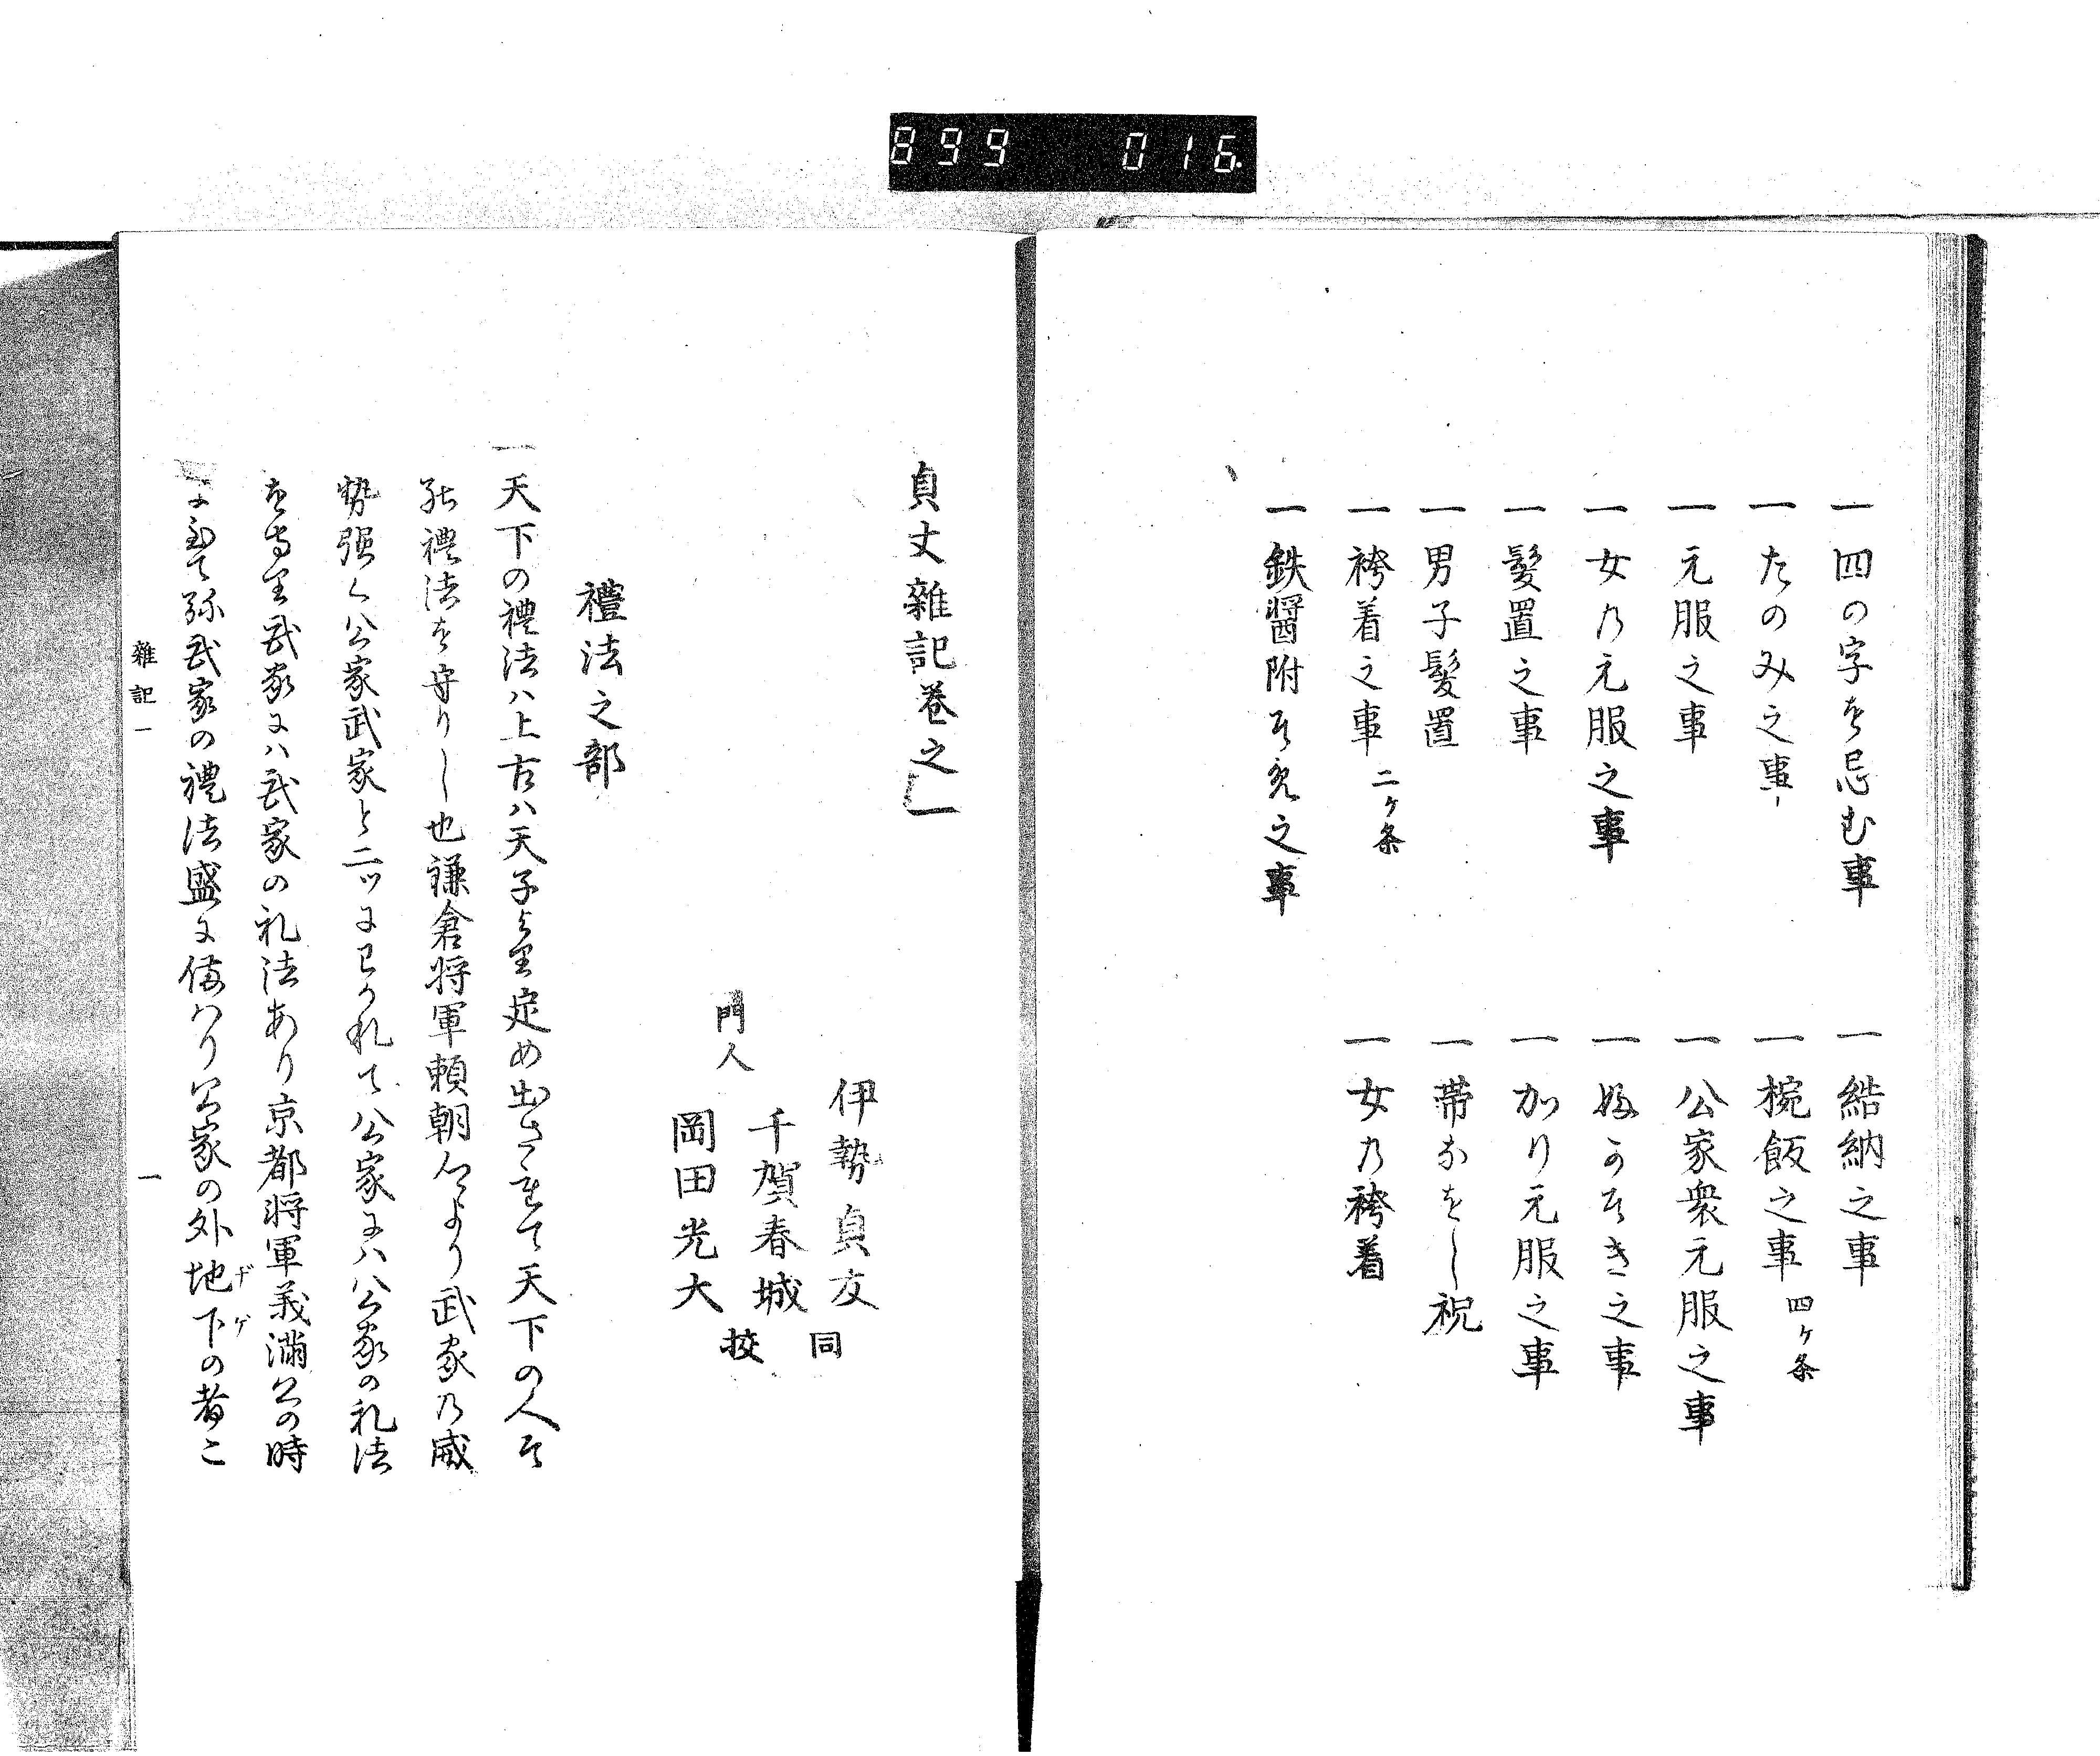 899 016
一四の字を忌む事
一結納之事
一たのみ之事
一椀飯之事 四ケ条
一元服之事
一公家衆元服之事
一女乃元服之事
一かり元服之事
一髪置之事
一男子髪置
一帯なをし祝
一袴着之事 二ケ条
一女乃袴着
一鉄醤附そめ之事
貞丈雜記巻之一
伊勢貞友
門人
千賀春城
岡田光大
同
挍
禮法之部
一天下の禮法ハ上古ハ天子より定め出されて天下の人そ
能禮法を守りし也鎌倉将軍頼朝公より武家乃威
勢强く公家武家と二ツにわかれて公家にハ公家の礼法
を守り武家にハ武家の礼法あり京都将軍義満公の時
に至て弥武家の禮法盛に備ハり公家の外地下の者こ
ヂゲ
雜記一
一